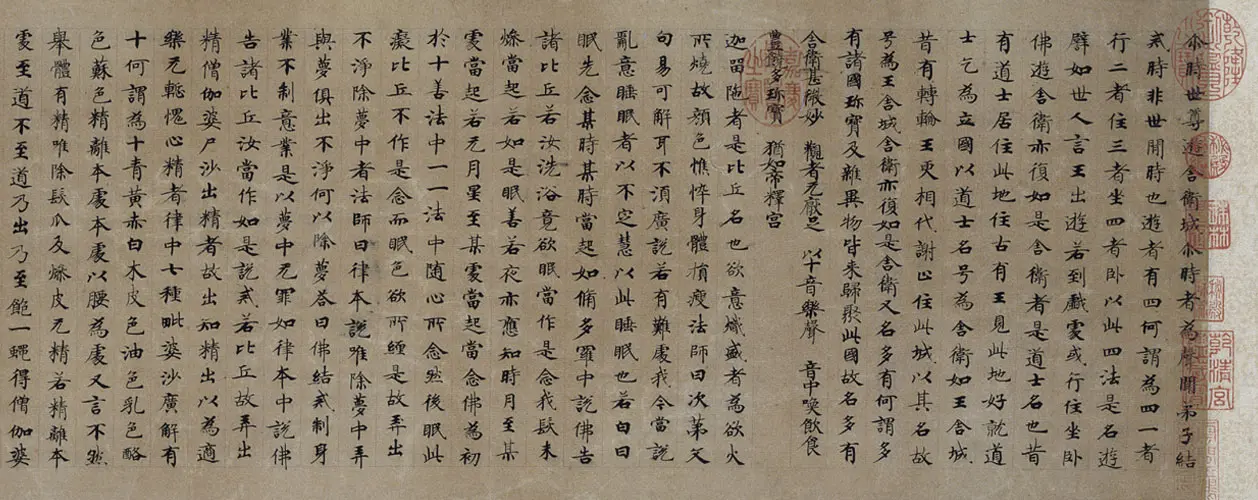 尒時世尊遊舍衛城尒時者為聲聞弟子結
戒時非世間時也遊者有四何謂為四一者
行二者住三者坐四者卧以此四法是名遊
譬如世人言王出遊若到戲處或行住坐卧
佛遊舍衛亦復如是舍衛者是道士名也昔
有道士居住此地往古有王見此地好就道
士乞為立國以道士名号為舍衛如王舍城
昔有轉輪王更相代謝止住此城以其名故
号為王舍城舍衛亦復如是舍衛又名多有何謂多
有諸國珎寶及雜異物皆来歸聚此國故名多有
舍衛甚微妙 觀者无厭足 以十音樂聲 音中喚飲食
豐饒多珎寶 猶如帝釋宮
迦留陁者是比丘名也欲意熾盛者為欲火
所燒故顔色憔悴身體損瘦法師曰次第文
句易可解耳不湏廣説若有難處我今當説
亂意睡眠者以不定慧以此睡眠也若白曰
眠先念某時某時當起如脩多羅中説佛告
諸比丘若汝洗浴竟欲眠當作是念我髮未
燥當起若如是眠善若夜亦應知時月至某
處當起若无月星至某處當起當念佛為初
於十善法中一一法中随心所念然後眠此
癡比丘不作是念而眠色欲所纏是故弄出
不淨除夢中者法師曰律本説唯除夢中弄
與夢俱出不淨何以除夢荅曰佛結戒制身
業不制意業是以夢中无罪如律本中説佛
告諸比丘汝當作如是説戒若比丘故弄出
精僧伽婆尸沙出精者故出知精出以為適
樂无輕愧心精者律中七種毗婆沙廣解有
十何謂為十青黄赤白木皮色油色乳色酪
色蘇色精離本處本處以腰為處又言不然
舉體有精唯除髮爪及燥皮无精若精離本
處至道不至道乃出乃至飽一蠅得僧伽婆
乾清宮